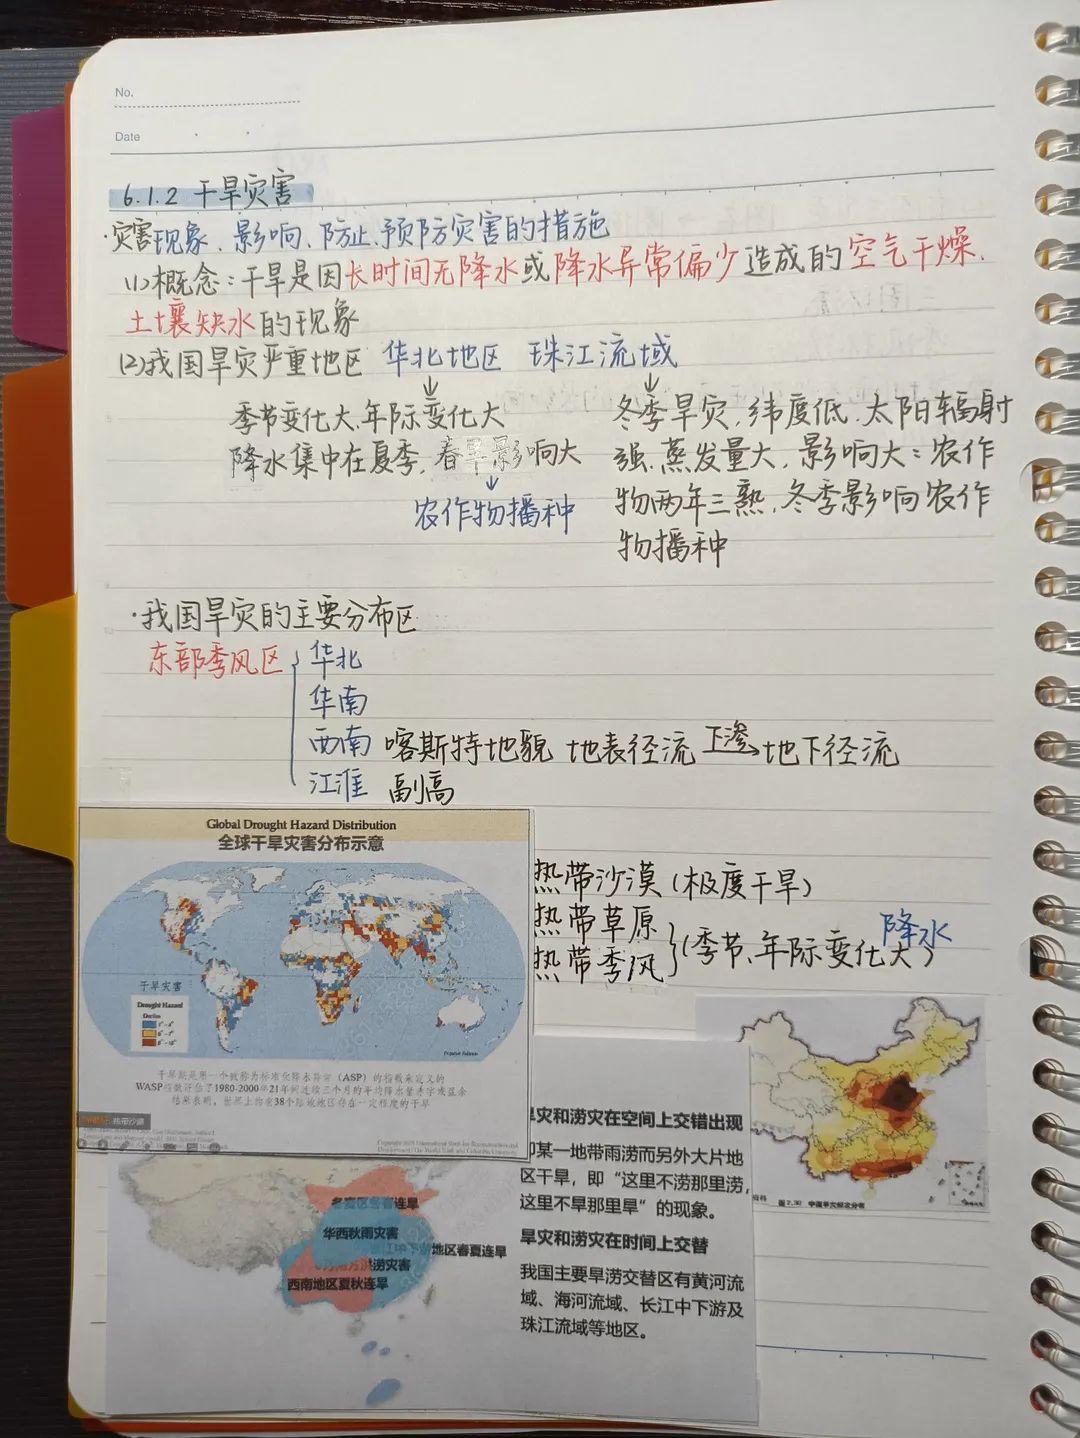 No.
Date
6.1.2 干旱灾害
·灾害现象、影响、防止、预防灾害的措施
(1)概念：干旱是因长时间无降水或降水异常偏少造成的空气干燥、
土壤缺水的现象
(2)我国旱灾严重地区 华北地区 珠江流域
季节变化大、年际变化大
降水集中在夏季，春旱影响大
农作物播种
冬季旱灾，纬度低、太阳辐射
强、蒸发量大，影响大：农作
物两年三熟，冬季影响农作
物播种
·我国旱灾的主要分布区
东部季风区
华北
华南
西南 喀斯特地貌 地表径流 下渗 地下径流
江淮 副高
热带沙漠（极度干旱）
热带草原
热带季风
（季节、年际变化大）
降水
Global Drought Hazard Distribution
全球干旱灾害分布示意
干旱灾害
Drought Hazard
Deciles
热带沙漠
旱灾和涝灾在空间上交错出现
即某一地带雨涝而另外大片地
区干旱，即“这里不涝那里涝，
这里不旱那里旱”的现象。
旱灾和涝灾在时间上交替
我国主要旱涝交替区有黄河流
域、海河流域、长江中下游及
珠江流域等地区。
华西秋雨灾害
地区春夏连旱
洪涝灾害
西南地区夏秋连旱
图2.30 中国旱灾频次分布